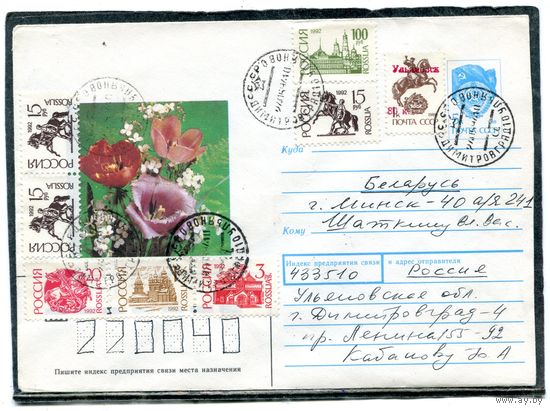 РОССИЯ 1992
100 руб
ROSSIJA
РОССИЯ 1992
15 руб
ROSSIJA
Ульяновск
ПОЧТА СССР
ПОЧТА СССР
РОССИЯ 1992
15 руб
ROSSIJA
РОССИЯ 1992
15 руб
ROSSIJA
РОССИЯ 1992
РОССИЯ
1992
РОССИЯ
3
ROSSIJA
ДИМИТРОВГРАД
Куда Беларусь
г. Минск-40 а/я 241
Кому
Индекс предприятия связи и адрес отправителя
433510 Россия
Ульяновская обл.
г. Димитровград-4
пр. Ленина 155-92
220040
Пишите индекс предприятия связи места назначения
www.ay.by